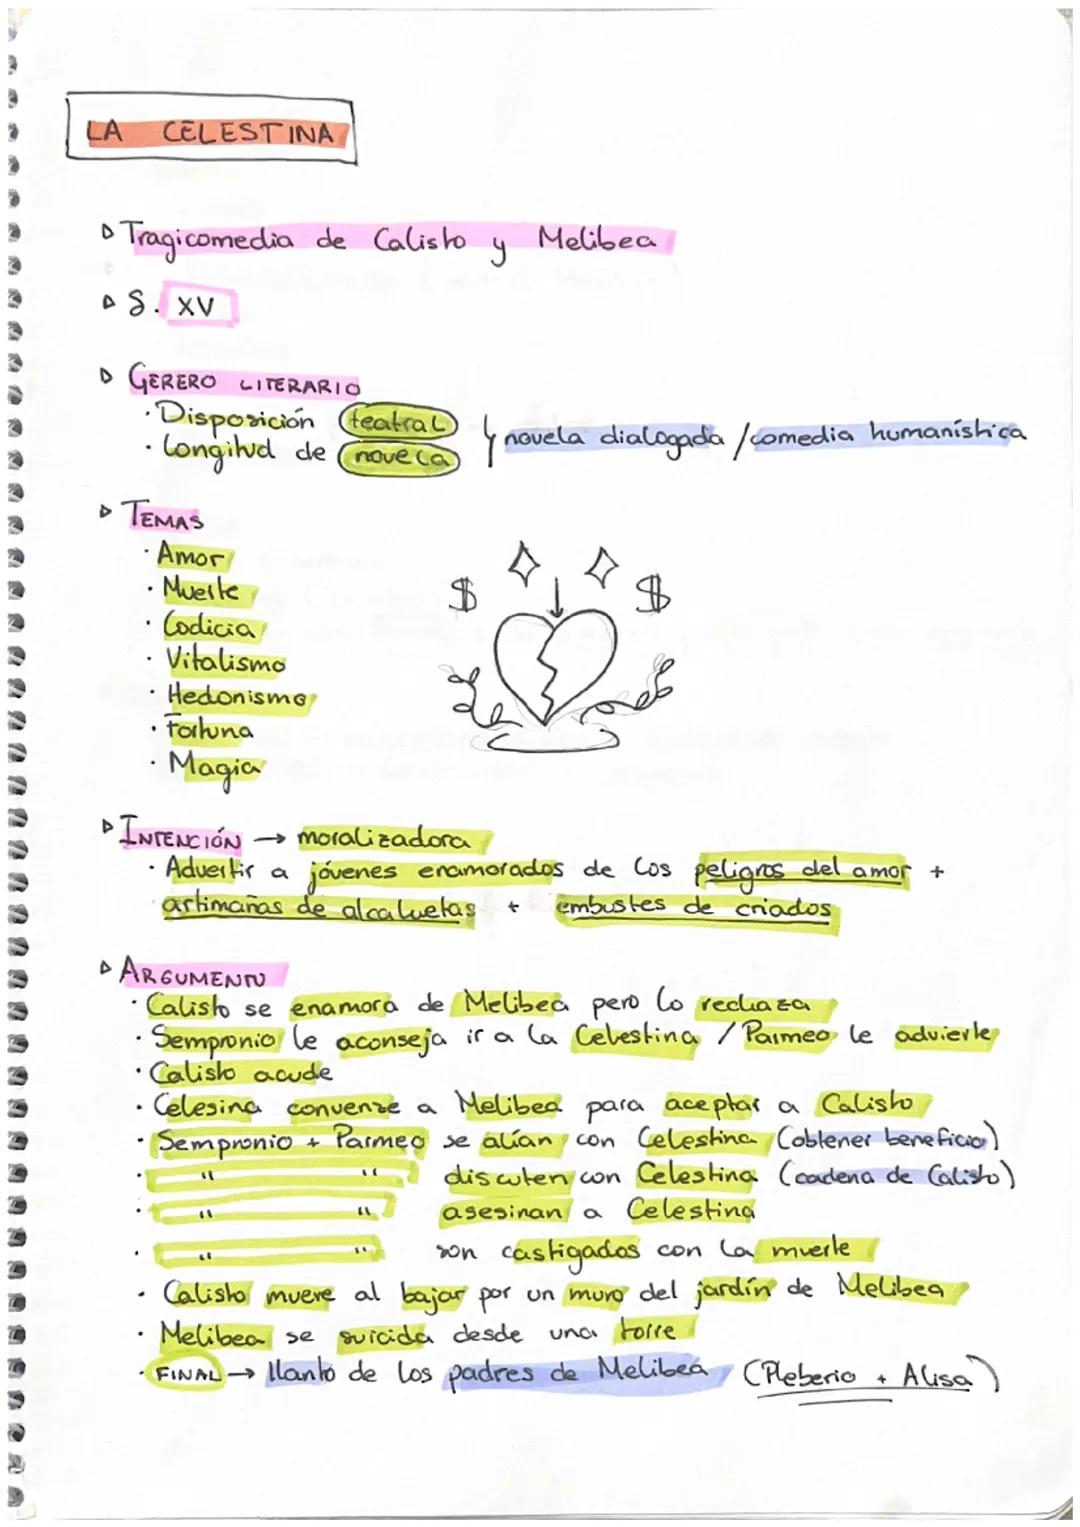 LA CELESTINA
▷ Tragicomedia de Calisto y Melibea
▷ S. XV
▷ GERERO LITERARIO
· Disposición teatral
· Longitud de novela } novela dialogada / comedia humanística
▷ TEMAS
· Amor
· Muerte
· Codicia
· Vitalismo
· Hedonismo
· Fortuna
· Magia
$ $
▷ INTENCIÓN → moralizadora
· Advertir a jóvenes enamorados de los peligros del amor +
artimañas de alcahuetas + embustes de criados
▷ ARGUMENTO
· Calisto se enamora de Melibea pero lo rechaza
· Sempronio le aconseja ir a la Celestina / Parmeo le advierte
· Calisto acude
· Celesina convenze a Melibea para aceptar a Calisto
· Sempronio + Parmeo se alían con Celestina (obtener beneficio)
· " " discuten con Celestina (cadena de Calisto)
· " " asesinan a Celestina
· " " son castigados con la muerte
· Calisto muere al bajar por un muro del jardín de Melibea
· Melibea se suicida desde una torre
· FINAL → llanto de los padres de Melibea (Pleberio + Alisa)